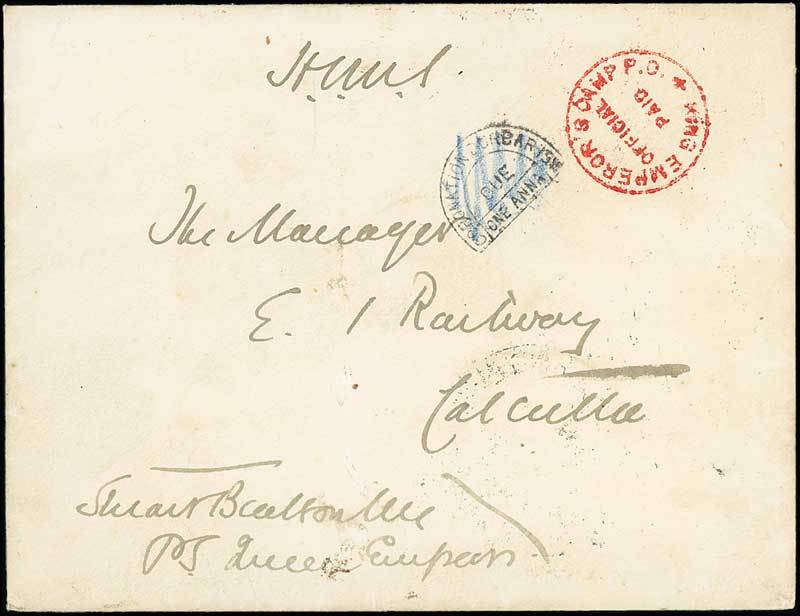 H.M.S
KING EMPEROR'S CAMP P.O.
OFFICIAL
PAID
DUE
ONE ANNA
The Manager
E. I Railway
Calcutta
Stuart
PS Queen Empress